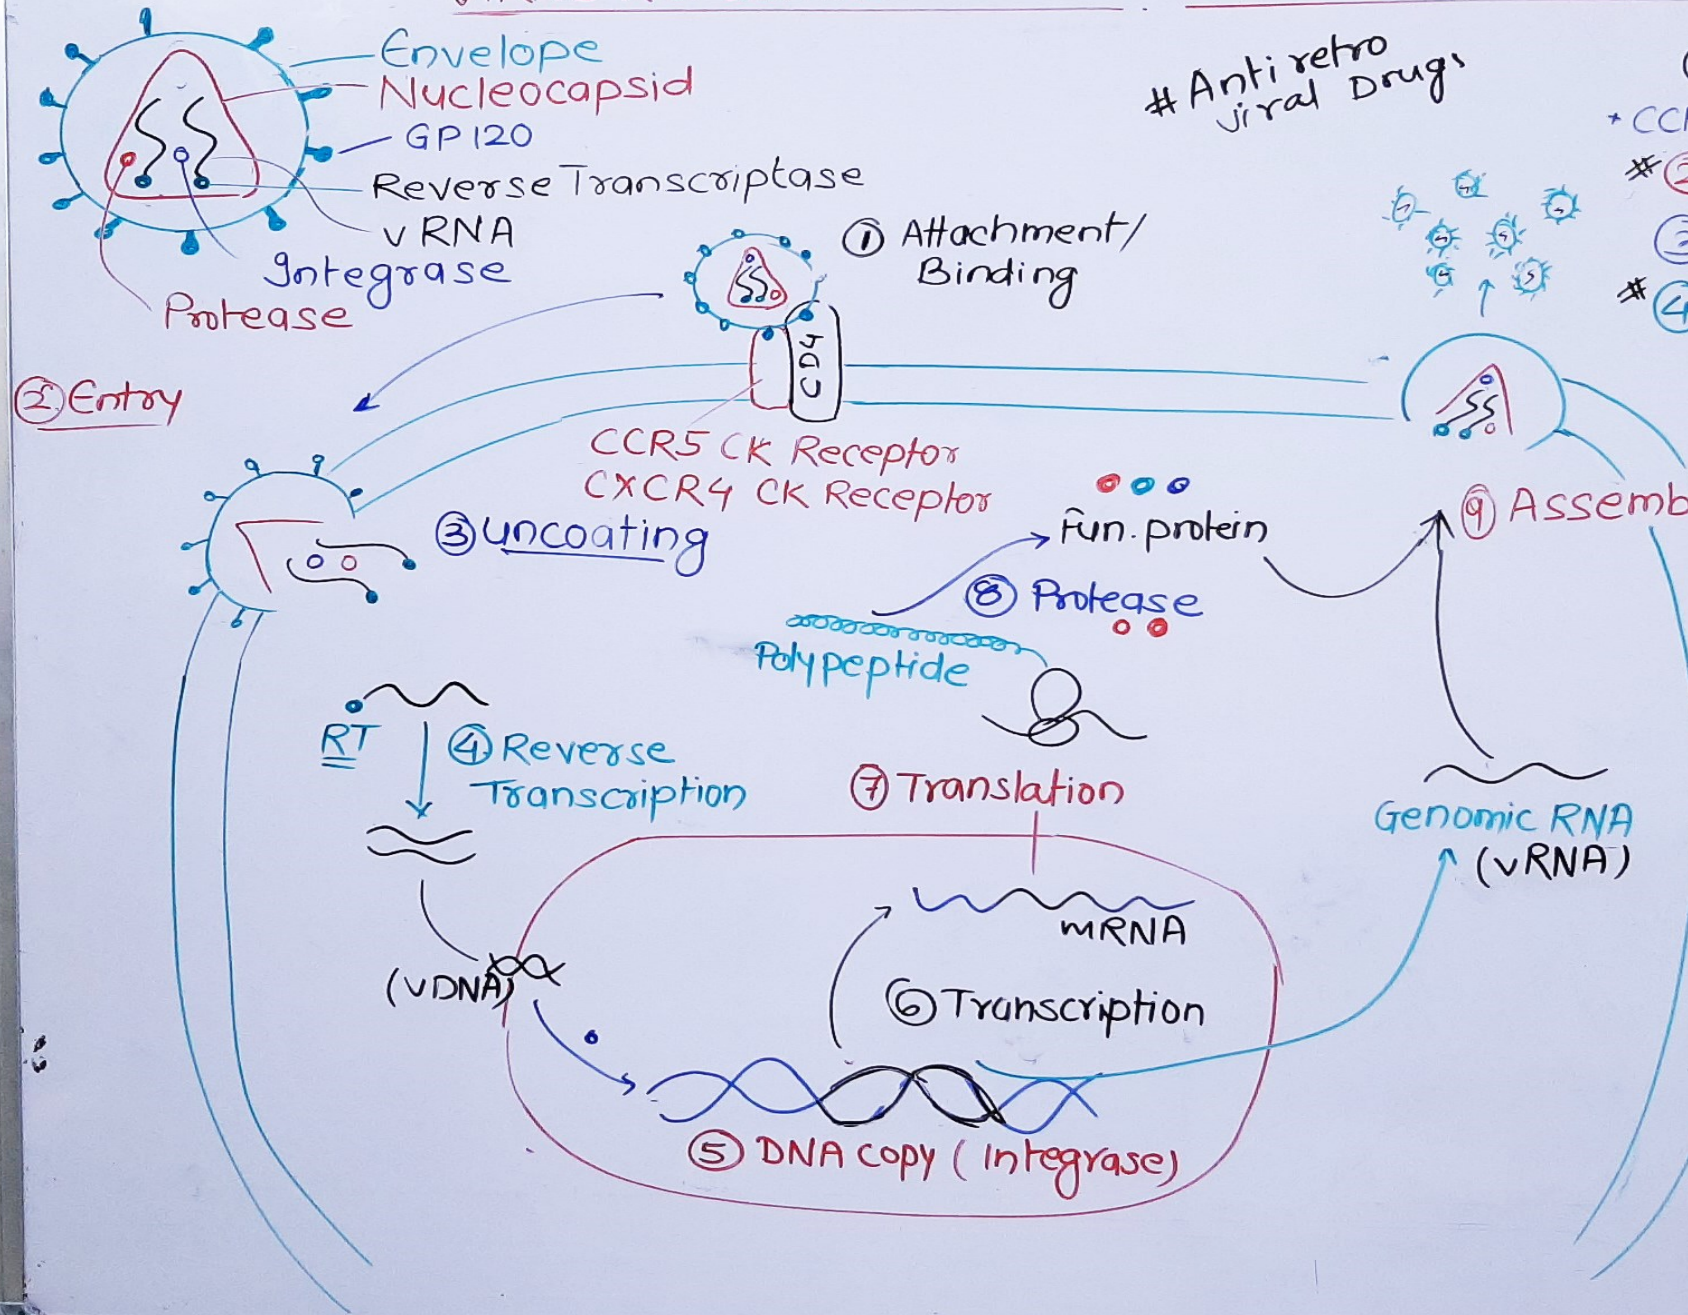 Envelope
Nucleocapsid
GP120
Reverse Transcriptase
vRNA
Integrase
Protease
# Anti retro
viral Drugs
* CC
# 2
3
# 4
① Attachment/
Binding
CD4
② Entry
CCR5 CK Receptor
CXCR4 CK Receptor
③ uncoating
Fun. protein
⑨ Assemb
⑧ Protease
Polypeptide
RT
④ Reverse
Transcription
⑦ Translation
Genomic RNA
(vRNA)
mRNA
(vDNA)
⑥ Transcription
⑤ DNA copy (Integrase)